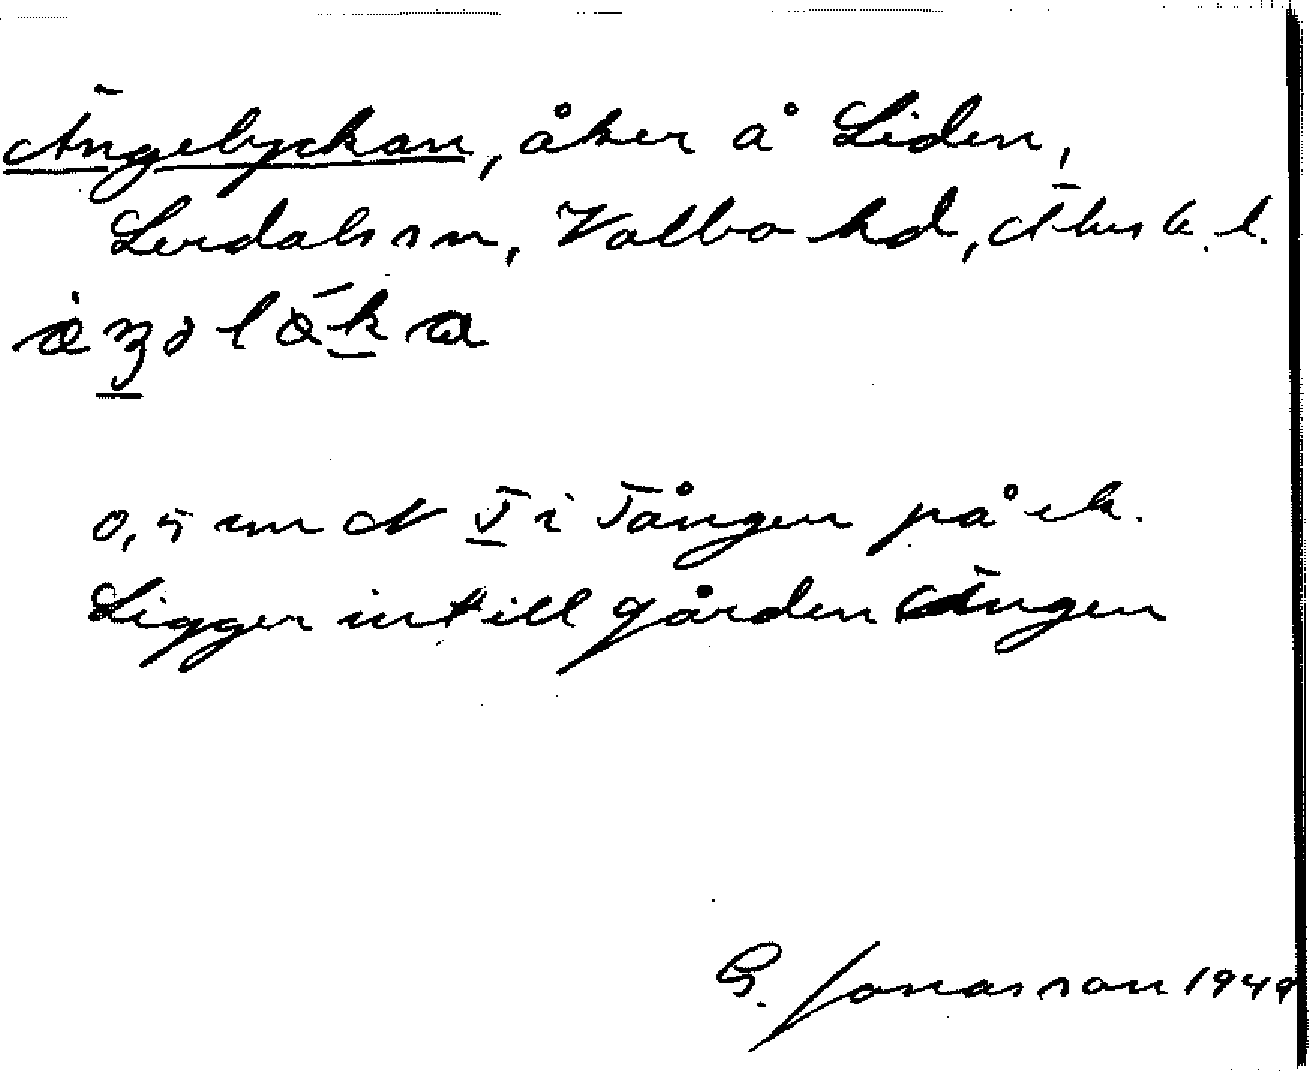 Ängebyckan, åker å Liden,
Lerdals sn, Valbo hd, Älvsb. l.
0,5 mm N T i Tången på ek.
Ligger intill gården Ängen
G. Jonasson 1949